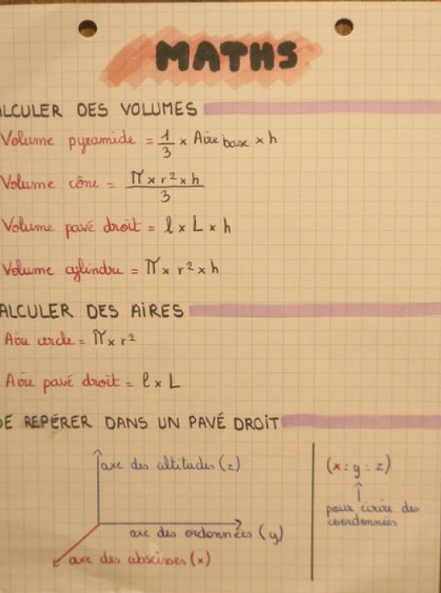 MATHS
ALCULER DES VOLUMES
Volume pyramide = 1/3 × Aire base × h
Volume cône = π × r² × h / 3
Volume pavé droit = l × L × h
Volume cylindre = π × r² × h
ALCULER DES AIRES
Aire cercle = π × r²
Aire pavé droit = l × L
SE REPÉRER DANS UN PAVÉ DROIT
axe des altitudes (z)
axe des ordonnées (y)
axe des abscisses (x)
(x : y : z)
pour écrire des
coordonnées